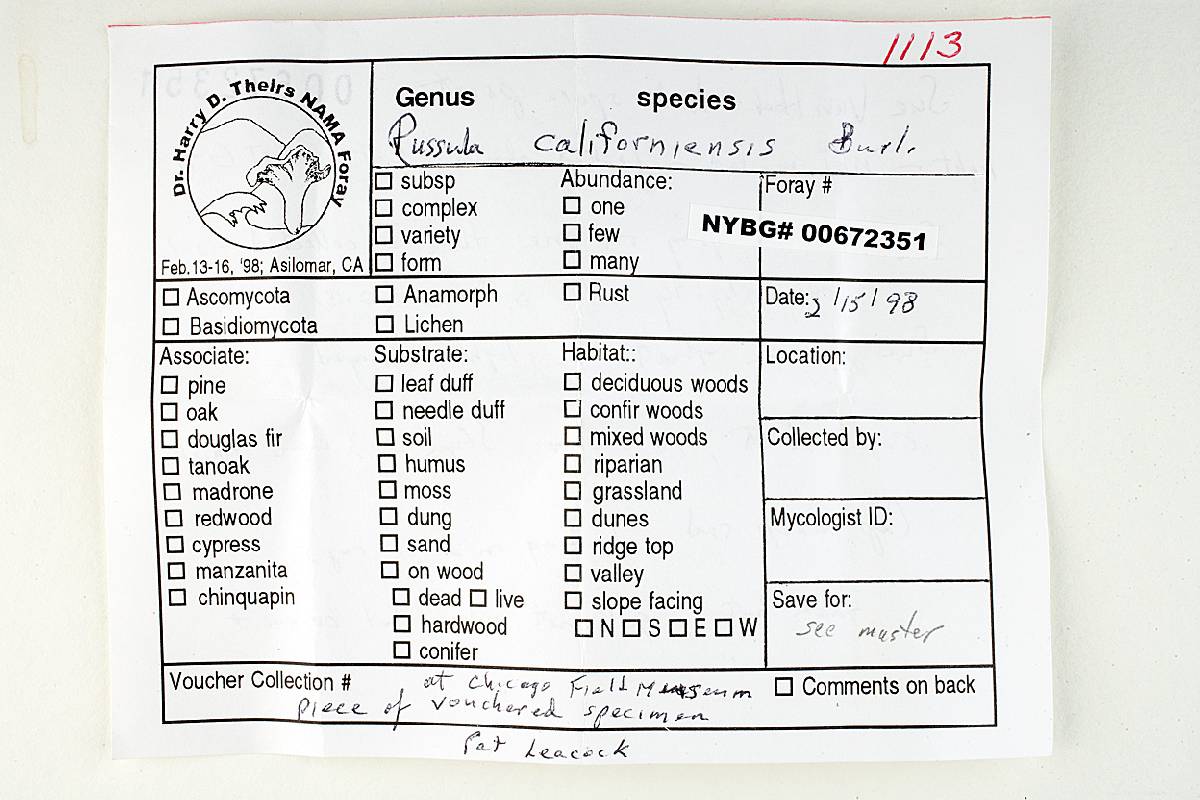 1113
Dr. Harry D. Theirs NAMA Foray
Feb.13-16, '98; Asilomar, CA
Genus species
Russula californiensis Burl.
☐ subsp
☐ complex
☐ variety
☐ form
Abundance:
☐ one
☐ few
☐ many
Foray #
NYBG# 00672351
☐ Ascomycota
☐ Basidiomycota
☐ Anamorph
☐ Lichen
☐ Rust
Date: 2/15/98
Associate:
☐ pine
☐ oak
☐ douglas fir
☐ tanoak
☐ madrone
☐ redwood
☐ cypress
☐ manzanita
☐ chinquapin
Substrate:
☐ leaf duff
☐ needle duff
☐ soil
☐ humus
☐ moss
☐ dung
☐ sand
☐ on wood
☐ dead ☐ live
☐ hardwood
☐ conifer
Habitat::
☐ deciduous woods
☐ confir woods
☐ mixed woods
☐ riparian
☐ grassland
☐ dunes
☐ ridge top
☐ valley
☐ slope facing
☐ N ☐ S ☐ E ☐ W
Location:
Collected by:
Mycologist ID:
Save for:
see master
Voucher Collection # at Chicago Field Museum ☐ Comments on back
piece of vouchered specimen
Pat Leacock